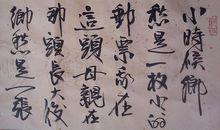 小時候鄉
愁是一枚小的
郵票我在
這頭母親在
那頭長大後
鄉愁是一張